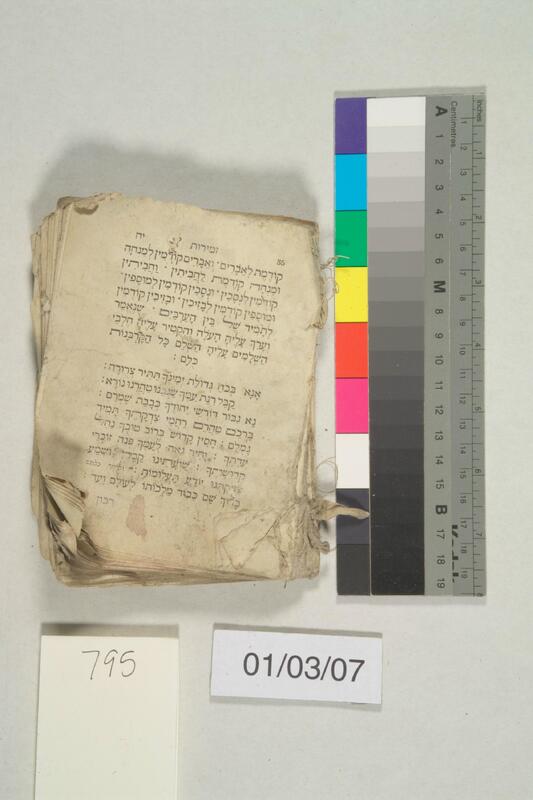 זמירות
יח
35
קוֹדֶמֶת לְאֵבָרִים · וְאֵבָרִים קוֹדְמִין לְמִנְחָה
וּמִנְחָה קוֹדֶמֶת לַחֲבִיתִּין · וַחֲבִיתִּין
קוֹדְמִין לִנְסָכִין · וּנְסָכִין קוֹדְמִין לְמוּסָפִין ·
וּמוּסָפִין קוֹדְמִין לְבָזִיכִין · וּבָזִיכִין קוֹדְמִין
לְתָמִיד שֶׁל בֵּין הָעַרְבַּיִם · שֶׁנֶּאֱמַר
וְעָרַךְ עָלֶיהָ הָעֹלָה וְהִקְטִיר עָלֶיהָ חֶלְבֵי
הַשְּׁלָמִים עָלֶיהָ הַשְׁלֵם כָּל הַקָּרְבָּנוֹת
כֻּלָּם :
אָנָּא בְּכֹחַ גְּדוּלַּת יְמִינְךָ תַּתִּיר צְרוּרָה :
קַבֵּל רִנַּת עַמְּךָ שַׂגְּבֵנוּ טַהֲרֵנוּ נוֹרָא :
נָא גִבּוֹר דּוֹרְשֵׁי יִחוּדְךָ כְּבָבַת שָׁמְרֵם :
בָּרְכֵם טַהֲרֵם רַחֲמֵי צִדְקָתְךָ תָּמִיד
גָּמְלֵם : חֲסִין קָדוֹשׁ בְּרוֹב טוּבְךָ נַהֵל
עֲדָתֶךָ : יָחִיד גֵּאֶה לְעַמְּךָ פְּנֵה זוֹכְרֵי
קְדוּשָּׁתֶךָ : שַׁוְעָתֵינוּ קַבֵּל וּשְׁמַע
צַעֲקָתֵנוּ יוֹדֵעַ תַּעֲלוּמוֹת :
בָּרוּךְ שֵׁם כְּבוֹד מַלְכוּתוֹ לְעוֹלָם וָעֶד :
רבון
inches
Centimetres
1 2 3 4 5 6 7 8 9 10 11 12 13 14 15 16 17 18 19
A
M
B
795
01/03/07